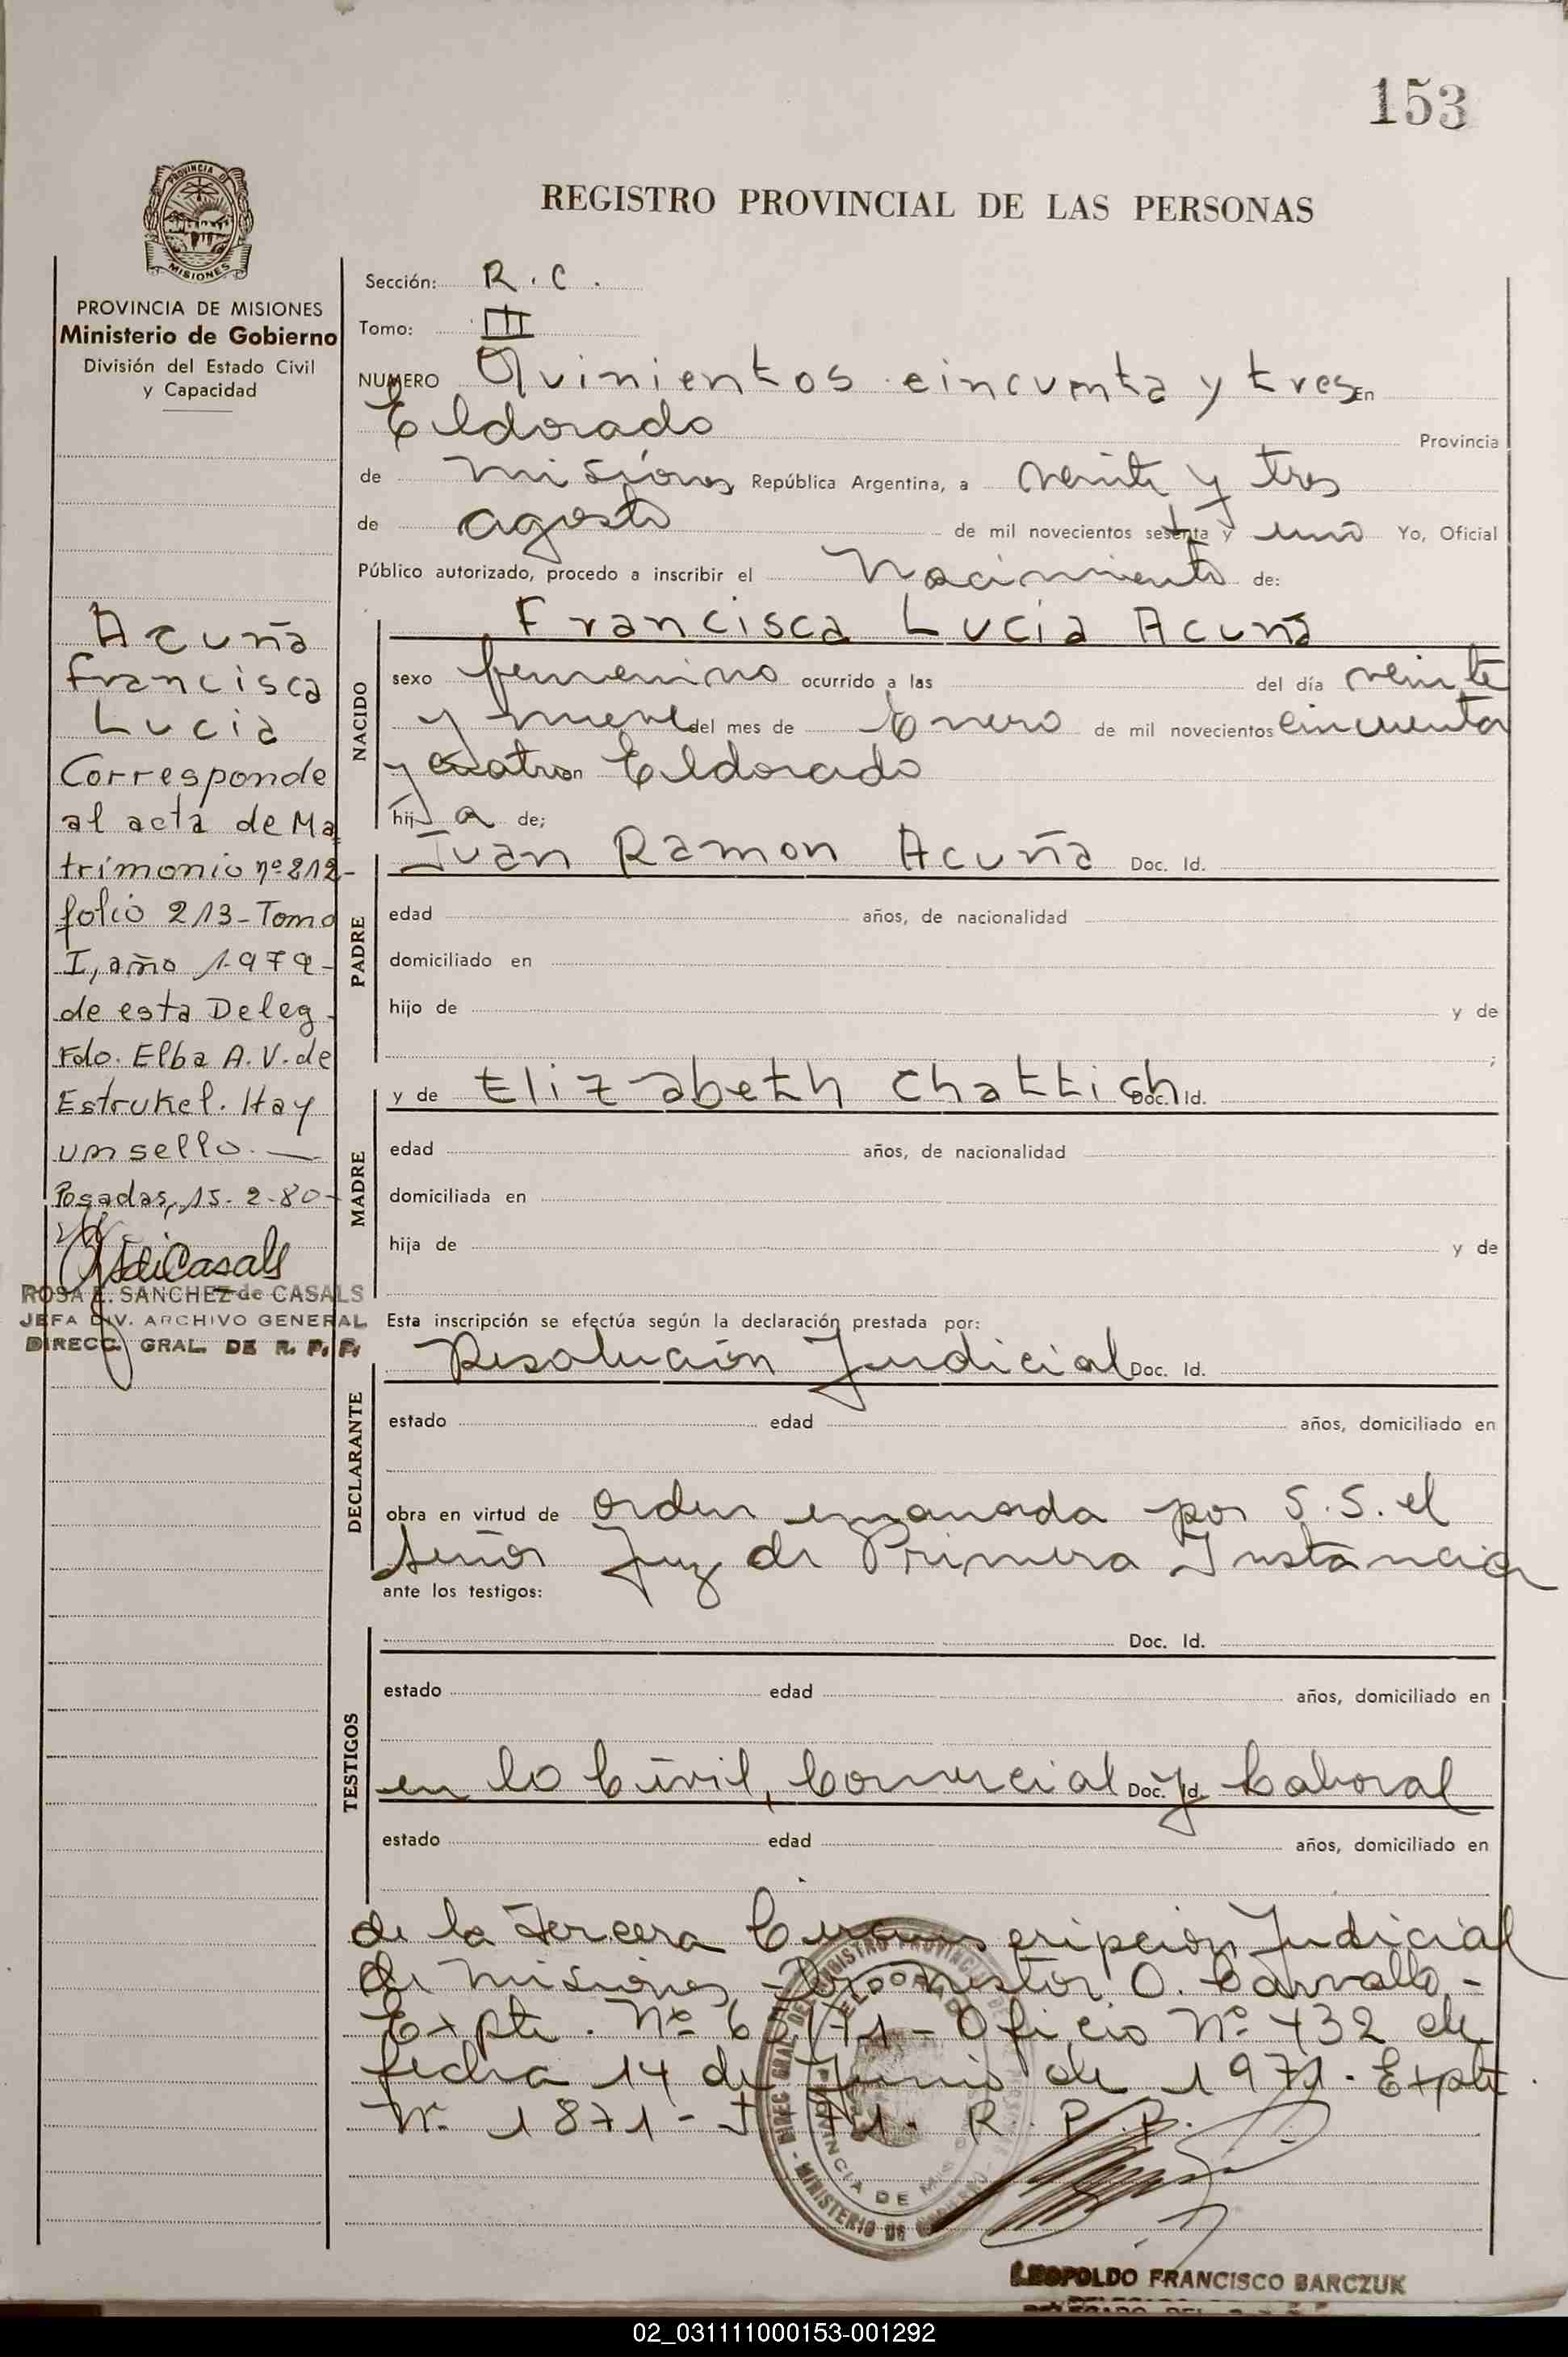 153
REGISTRO PROVINCIAL DE LAS PERSONAS
PROVINCIA D
MISIONES
PROVINCIA DE MISIONES
Ministerio de Gobierno
División del Estado Civil
y Capacidad
Acuña
Francisca
Lucia
Corresponde
al acta de Ma
trimonio nº 212-
folio 213-Tomo
I, año 1.979-
de esta Deleg.
Fdo. Elba A. V. de
Estrukel. Hay
un sello.—
Posadas, 15-2-80-
ROSA E. SANCHEZ de CASALS
JEFA DIV. ARCHIVO GENERAL
DIRECC. GRAL. DE R. P. P.
Sección: R.C.
Tomo: III
NUMERO Quinientos cincuenta y tres En
Eldorado Provincia
de Misiones República Argentina, a veinte y tres
de agosto de mil novecientos setenta y uno Yo, Oficial
Público autorizado, procedo a inscribir el Nacimiento de:
NACIDO
Francisca Lucia Acuña
sexo femenino ocurrido a las del día veinte
y nueve del mes de Enero de mil novecientos cincuenta
y cuatro en Eldorado
hij a de;
PADRE
Juan Ramon Acuña Doc. Id.
edad años, de nacionalidad
domiciliado en
hijo de y de
;
MADRE
y de Elizabeth Chattich Doc. Id.
edad años, de nacionalidad
domiciliada en
hija de y de
Esta inscripción se efectúa según la declaración prestada por:
DECLARANTE
Resolución Judicial Doc. Id.
estado edad años, domiciliado en
obra en virtud de orden emanada por S.S. el
Señor Juez de Primera Instancia
ante los testigos:
TESTIGOS
Doc. Id.
estado edad años, domiciliado en
en lo Civil, Comercial Doc. Id. y Laboral
estado edad años, domiciliado en
de la Tercera Circunscripción Judicial
de Misiones, Dr. Nestor O. Carvallo-
Expte. Nº 6 /71- Oficio Nº 432 de
fecha 14 de Junio de 1971. Expte.
Nº 1871- 71. R.P.P.
ELDORADO
PROVINCIA DE
MINISTERIO DE GOBIERNO
LEOPOLDO FRANCISCO BARCZUK
02_031111000153-001292